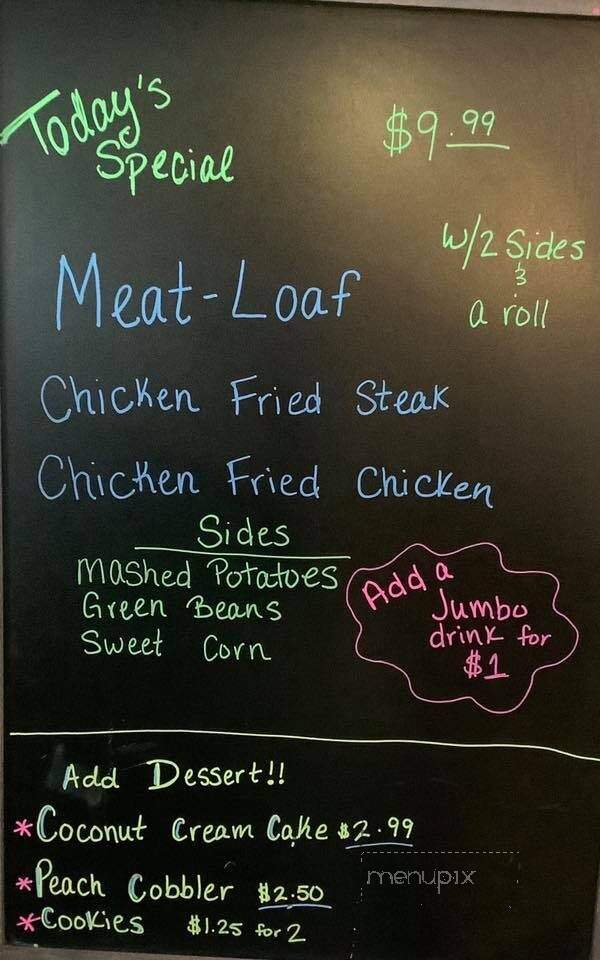 Today's
Special
$9.99
w/2 Sides
&
a roll
Meat-Loaf
Chicken Fried Steak
Chicken Fried Chicken
Sides
Mashed Potatoes
Green Beans
Sweet Corn
Add a
Jumbo
drink for
$1
Add Dessert!!
*Coconut Cream Cake $2.99
*Peach Cobbler $2.50
*Cookies $1.25 for 2
menupix